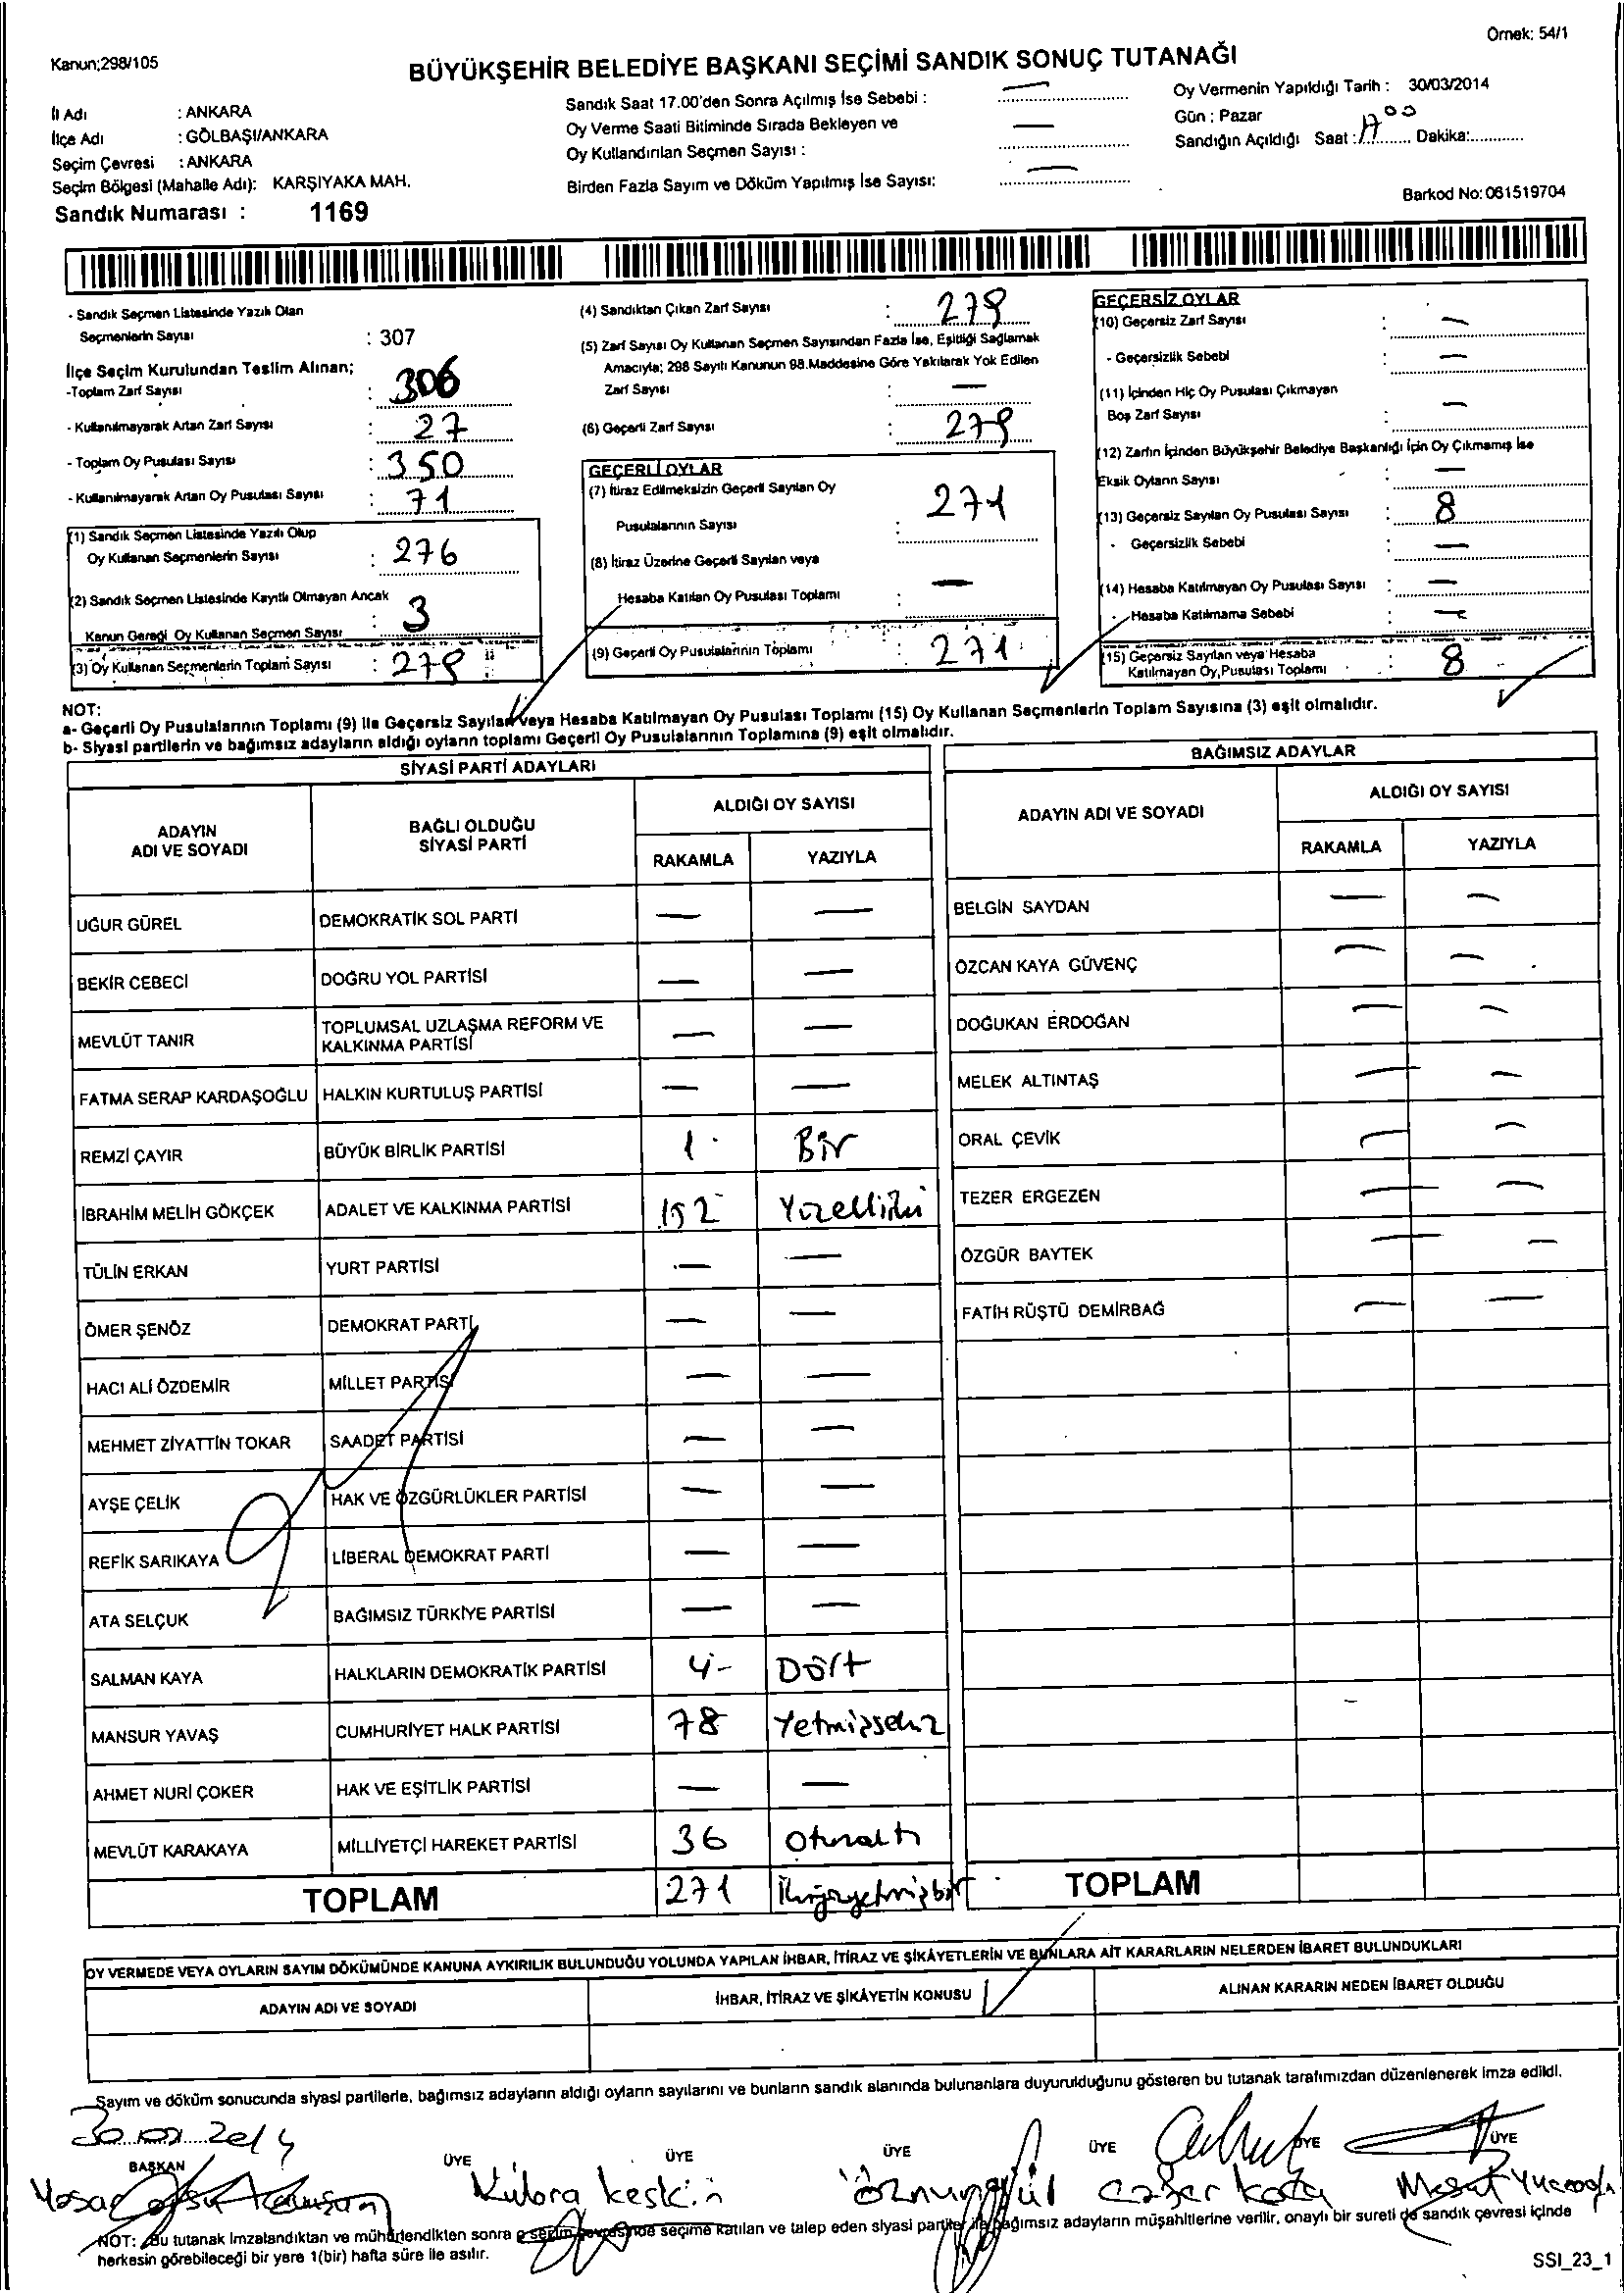 Örnek: 54/1
Kanun;298/105
BÜYÜKŞEHİR BELEDİYE BAŞKANI SEÇİMİ SANDIK SONUÇ TUTANAĞI
İl Adı : ANKARA
İlçe Adı : GÖLBAŞI/ANKARA
Seçim Çevresi : ANKARA
Seçim Bölgesi (Mahalle Adı): KARŞIYAKA MAH.
Sandık Numarası : 1169
Sandık Saat 17.00'den Sonra Açılmış İse Sebebi : —
Oy Verme Saati Bitiminde Sırada Bekleyen ve
Oy Kullandırılan Seçmen Sayısı : —
Birden Fazla Sayım ve Döküm Yapılmış İse Sayısı: —
Oy Vermenin Yapıldığı Tarih : 30/03/2014
Gün : Pazar
Sandığın Açıldığı Saat : 17 00 Dakika:
Barkod No: 061519704
- Sandık Seçmen Listesinde Yazılı Olan
Seçmenlerin Sayısı : 307
İlçe Seçim Kurulundan Teslim Alınan;
-Toplam Zarf Sayısı : 306
- Kullanılmayarak Artan Zarf Sayısı : 27
- Toplam Oy Pusulası Sayısı : 350
- Kullanılmayarak Artan Oy Pusulası Sayısı : 71
(1) Sandık Seçmen Listesinde Yazılı Olup
Oy Kullanan Seçmenlerin Sayısı : 276
(2) Sandık Seçmen Listesinde Kayıtlı Olmayan Ancak
Kanun Gereği Oy Kullanan Seçmen Sayısı : 3
(3) Oy Kullanan Seçmenlerin Toplam Sayısı : 279
(4) Sandıktan Çıkan Zarf Sayısı : 279
(5) Zarf Sayısı Oy Kullanan Seçmen Sayısından Fazla İse, Eşitliği Sağlamak
Amacıyla; 298 Sayılı Kanunun 98.Maddesine Göre Yakılarak Yok Edilen
Zarf Sayısı : —
(6) Geçerli Zarf Sayısı : 279
GEÇERLİ OYLAR
(7) İtiraz Edilmeksizin Geçerli Sayılan Oy
Pusulalarının Sayısı : 271
(8) İtiraz Üzerine Geçerli Sayılan veya
Hesaba Katılan Oy Pusulası Toplamı : —
(9) Geçerli Oy Pusulalarının Toplamı : 271
GEÇERSİZ OYLAR
(10) Geçersiz Zarf Sayısı : —
- Geçersizlik Sebebi : —
(11) İçinden Hiç Oy Pusulası Çıkmayan
Boş Zarf Sayısı : —
(12) Zarfın İçinden Büyükşehir Belediye Başkanlığı İçin Oy Çıkmamış İse
Eksik Oyların Sayısı —
(13) Geçersiz Sayılan Oy Pusulası Sayısı : 8
- Geçersizlik Sebebi : —
(14) Hesaba Katılmayan Oy Pusulası Sayısı : —
- Hesaba Katılmama Sebebi : —
(15) Geçersiz Sayılan veya Hesaba
Katılmayan Oy Pusulası Toplamı : 8
NOT:
a- Geçerli Oy Pusulalarının Toplamı (9) ile Geçersiz Sayılan veya Hesaba Katılmayan Oy Pusulası Toplamı (15) Oy Kullanan Seçmenlerin Toplam Sayısına (3) eşit olmalıdır.
b- Siyasi partilerin ve bağımsız adayların aldığı oyların toplamı Geçerli Oy Pusulalarının Toplamına (9) eşit olmalıdır.
SİYASİ PARTİ ADAYLARI
ADAYIN ADI VE SOYADI BAĞLI OLDUĞU SİYASİ PARTİ ALDIĞI OY SAYISI
RAKAMLA YAZIYLA
UĞUR GÜREL DEMOKRATİK SOL PARTİ — —
BEKİR CEBECİ DOĞRU YOL PARTİSİ — —
MEVLÜT TANIR TOPLUMSAL UZLAŞMA REFORM VE KALKINMA PARTİSİ — —
FATMA SERAP KARDAŞOĞLU HALKIN KURTULUŞ PARTİSİ — —
REMZİ ÇAYIR BÜYÜK BİRLİK PARTİSİ 1 Bir
İBRAHİM MELİH GÖKÇEK ADALET VE KALKINMA PARTİSİ 152 Yüzelliiki
TÜLİN ERKAN YURT PARTİSİ — —
ÖMER ŞENÖZ DEMOKRAT PARTİ — —
HACI ALİ ÖZDEMİR MİLLET PARTİSİ — —
MEHMET ZİYATTİN TOKAR SAADET PARTİSİ — —
AYŞE ÇELİK HAK VE ÖZGÜRLÜKLER PARTİSİ — —
REFİK SARIKAYA LİBERAL DEMOKRAT PARTİ — —
ATA SELÇUK BAĞIMSIZ TÜRKİYE PARTİSİ — —
SALMAN KAYA HALKLARIN DEMOKRATİK PARTİSİ 4- Dört
MANSUR YAVAŞ CUMHURİYET HALK PARTİSİ 78 Yetmişsekiz
AHMET NURİ ÇOKER HAK VE EŞİTLİK PARTİSİ — —
MEVLÜT KARAKAYA MİLLİYETÇİ HAREKET PARTİSİ 36 Otuzaltı
TOPLAM 271 İkiyüzyetmişbir
BAĞIMSIZ ADAYLAR
ADAYIN ADI VE SOYADI ALDIĞI OY SAYISI
RAKAMLA YAZIYLA
BELGİN SAYDAN — —
ÖZCAN KAYA GÜVENÇ — —
DOĞUKAN ERDOĞAN — —
MELEK ALTINTAŞ — —
ORAL ÇEVİK — —
TEZER ERGEZEN — —
ÖZGÜR BAYTEK — —
FATİH RÜŞTÜ DEMİRBAĞ — —
TOPLAM
OY VERMEDE VEYA OYLARIN SAYIM DÖKÜMÜNDE KANUNA AYKIRILIK BULUNDUĞU YOLUNDA YAPILAN İHBAR, İTİRAZ VE ŞİKÂYETLERİN VE BUNLARA AİT KARARLARIN NELERDEN İBARET BULUNDUKLARI
ADAYIN ADI VE SOYADI İHBAR, İTİRAZ VE ŞİKÂYETİN KONUSU ALINAN KARARIN NEDEN İBARET OLDUĞU
Sayım ve döküm sonucunda siyasi partilerle, bağımsız adayların aldığı oyların sayılarını ve bunların sandık alanında bulunanlara duyurulduğunu gösteren bu tutanak tarafımızdan düzenlenerek imza edildi.
30.03.2014
BAŞKAN ÜYE ÜYE ÜYE ÜYE ÜYE ÜYE
Kübra Keskin
NOT: Bu tutanak imzalandıktan ve mühürlendikten sonra o seçim çevresinde seçime katılan ve talep eden siyasi partiler ile bağımsız adayların müşahitlerine verilir, onaylı bir sureti de sandık çevresi içinde
herkesin görebileceği bir yere 1(bir) hafta süre ile asılır.
SSI_23_1